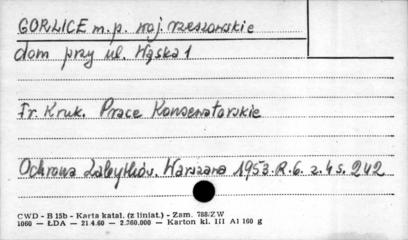 GORLICE m.p. woj. rzeszowskie
dom przy ul. Wąska 1
Fr. Kruk. Prace Konserwatorskie
Ochrona Zabytków. Warszawa 1953. R. 6. z. 4 s. 242
CWD - B 15b - Karta katal. (z liniat.) - Zam. 788/ZW
1060 — ŁDA — 21.4.60 — 2.260.000 — Karton kl. III A1 160 g